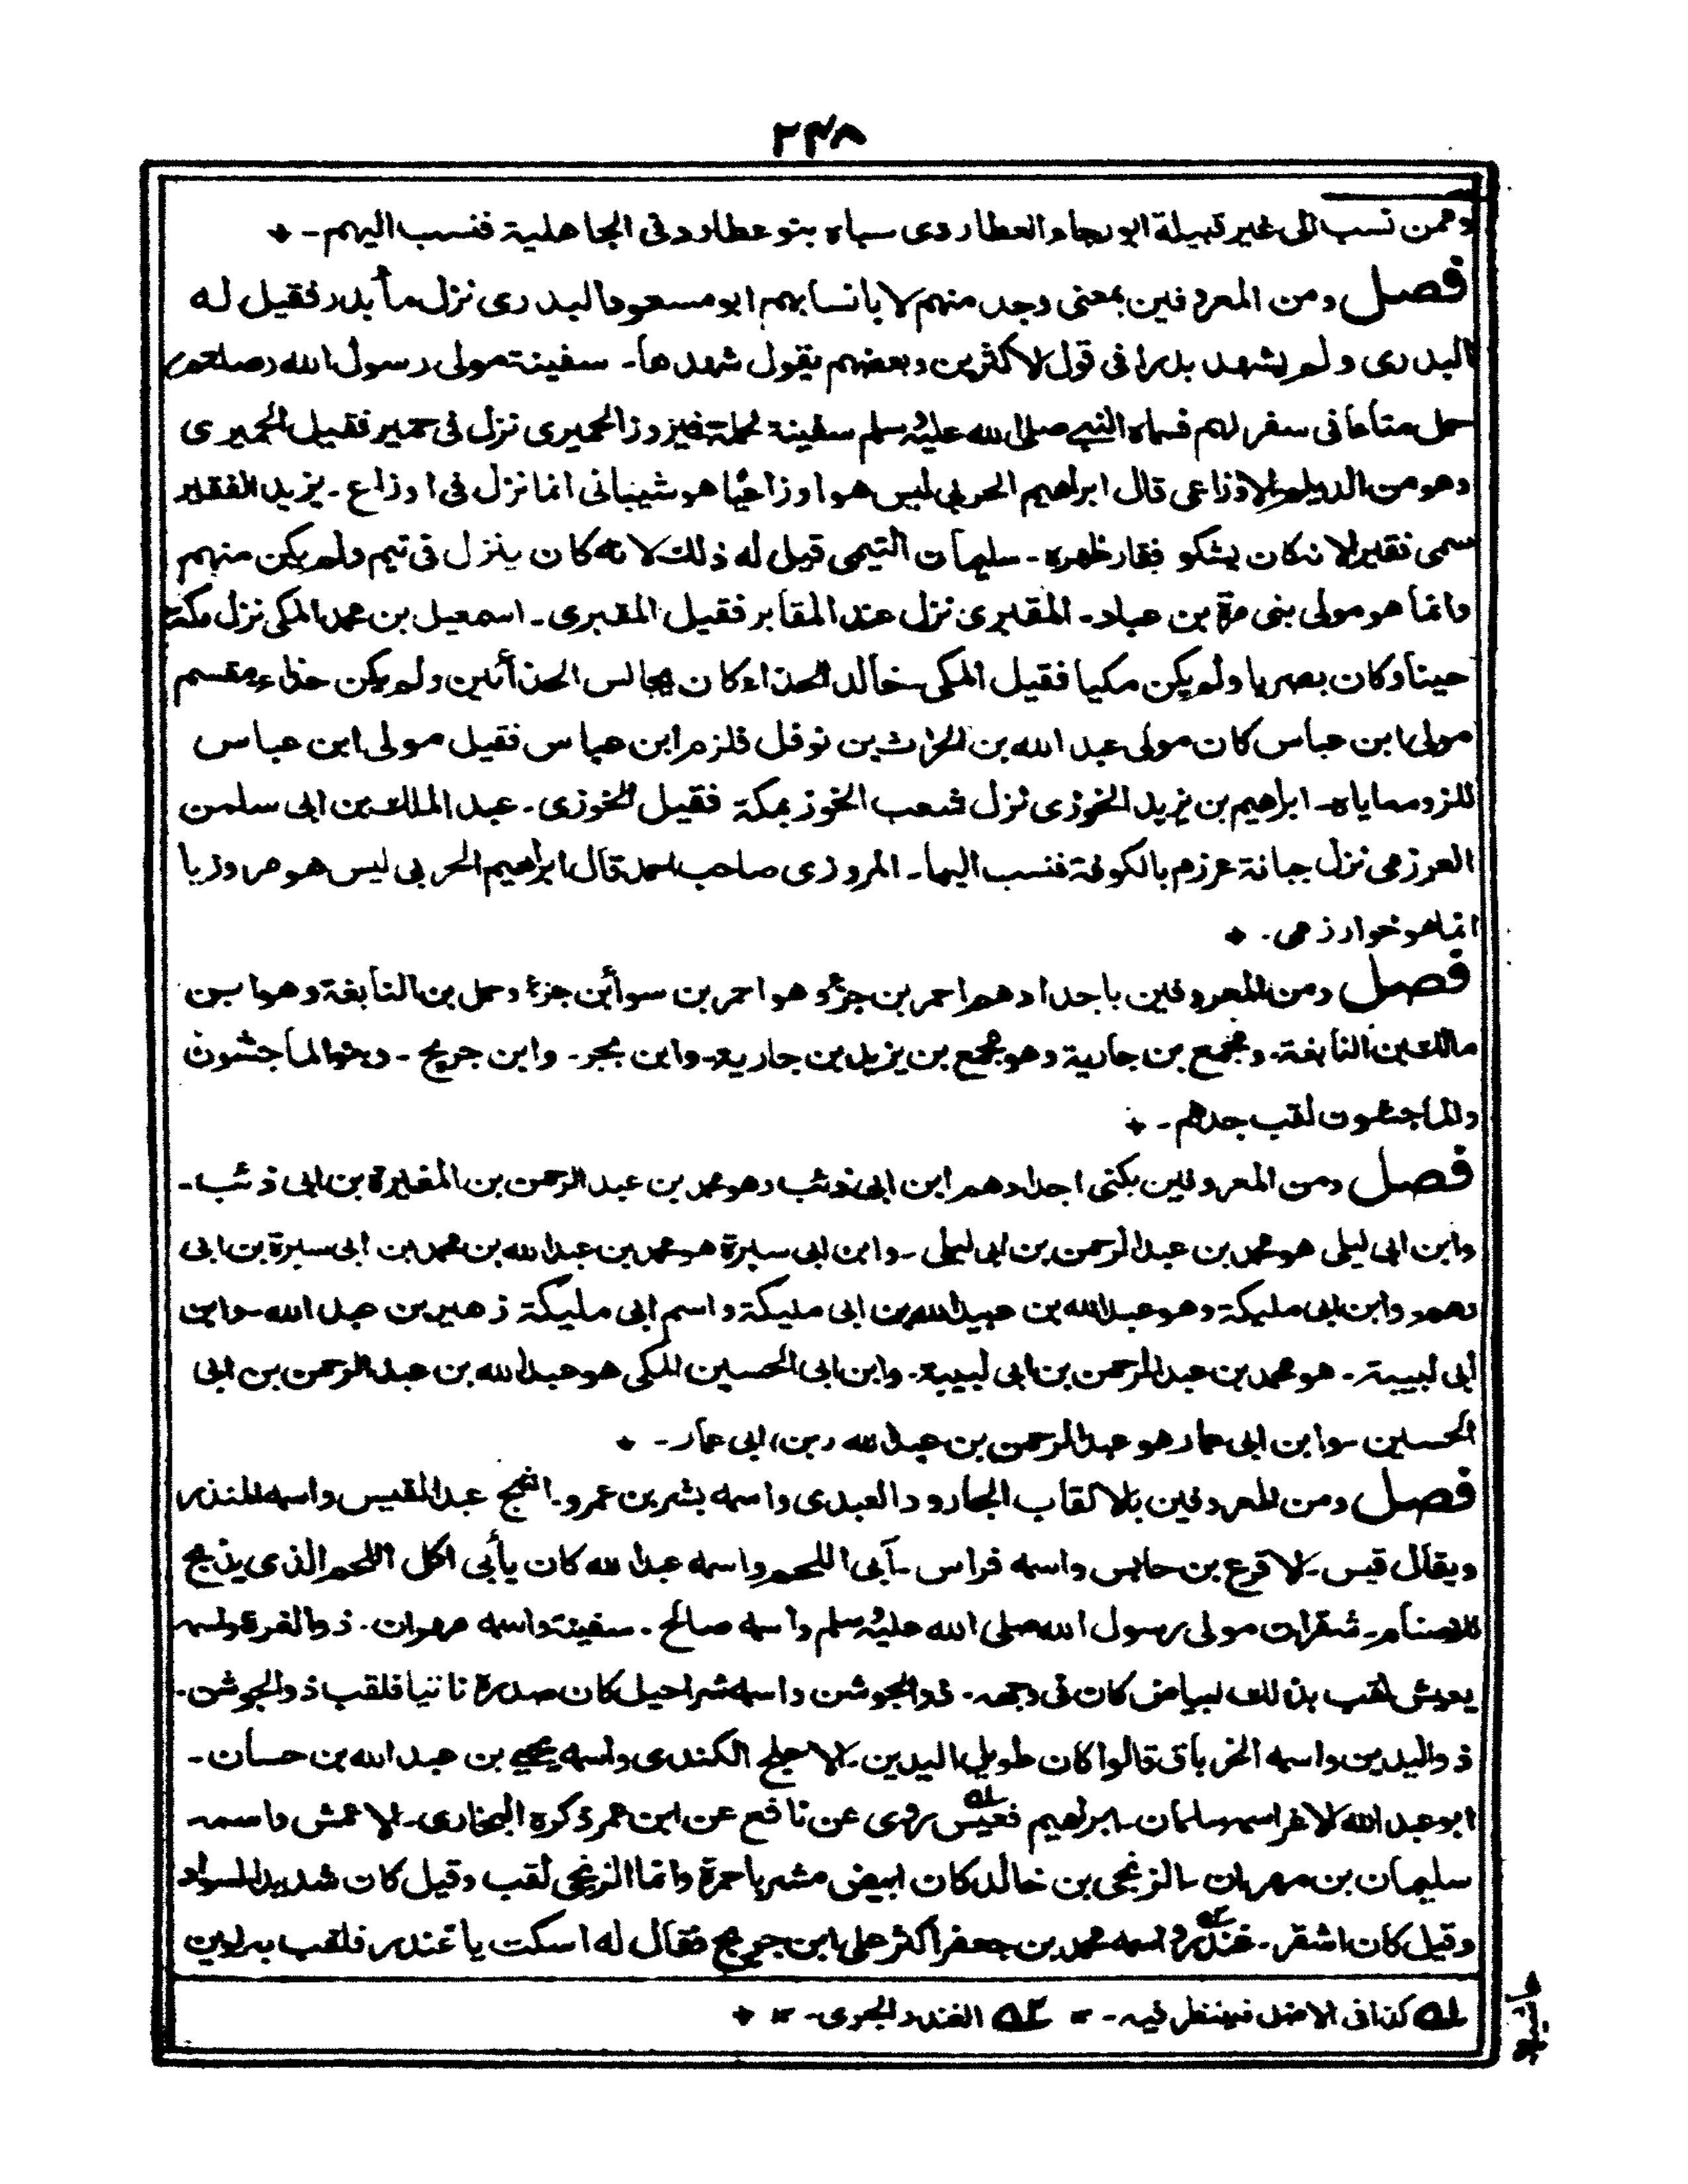 ۲۴۸
وممن نسب الى غير قبيلة ابو رجاء العطاردى سباه بنو عطارد فى الجاهلية فنسب اليهم۔
فصل ومن المعروفين بمعنى وجد منهم لا بانسابهم ابو مسعود البدرى نزل ماء بدر فقيل له
البدرى ولم يشهد بدرا فى قول الاكثرين وبعضهم يقول شهدها۔ سفينة مولى رسول الله (صلعم)
حمل متاعا فى سفر لهم فسماه النبى صلى الله عليه وسلم سفينة لحمله فيروز الحميرى نزل فى حمير فقيل الحميرى
وهو من الديلم الاوزاعى قال ابراهيم الحربى ليس هو اوزاعيا هو شيبانى انما نزل فى اوزاع۔ يزيد الفقير
سمى فقيرا لانه كان يشكو فقار ظهره۔ سليمان التيمى قيل له ذلك لانه كان ينزل فى تيم ولم يكن منهم
وانما هو مولى بنى مرة بن عباد۔ المقبرى نزل عند المقابر فقيل المقبرى۔ اسمعيل بن محمد المكى نزل مكة
حينا وكان بصريا ولم يكن مكيا فقيل المكى۔ خالد الحذاء كان يجالس الحذائين ولم يكن حذاء مقسم
مولى ابن عباس كان مولى عبد الله بن الحرث بن نوفل فلزم ابن عباس فقيل مولى ابن عباس
للزومه اياه۔ ابراهيم بن يزيد الخوزى نزل شعب الخوز بمكة فقيل الخوزى۔ عبد الملك بن ابى سلمن
العرزمى نزل جبانة عرزم بالكوفة فنسب اليها۔ المروزى صاحب احمد قال ابراهيم الحربى ليس هو مروزيا
انما هو خوارزمى۔
فصل ومن المعروفين باجدادهم احمر بن جزء وهو احمر بن سواء بن جزء وحمل بن النابغة وهو ابن
مالك بن النابغة۔ ومجمع بن جارية وهو مجمع بن يزيد بن جارية۔ وابن بجر۔ وابن جريج۔ وبنو الماجشون
والماجشون لقب جدهم۔
فصل ومن المعروفين بكنى اجدادهم ابن ابى ذئب وهو محمد بن عبد الرحمن بن المغيرة بن ابى ذئب۔
وابن ابى ليلى هو محمد بن عبد الرحمن بن ابى ليلى۔ وابن ابى سبرة هو محمد بن عبد الله بن محمد بن ابى سبرة بن ابى
رهم۔ وابن ابى مليكة وهو عبد الله بن عبيد الله بن ابى مليكة واسم ابى مليكة زهير بن عبد الله۔ وابن
ابى لبيبة۔ هو محمد بن عبد الرحمن بن ابى لبيبة۔ وابن ابى الحسين المكى هو عبد الله بن عبد الرحمن بن ابى
الحسين۔ وابن ابى عمار هو عبد الرحمن بن عبد الله (بن) ابى عمار۔
فصل ومن المعروفين بالالقاب الجارود العبدى واسمه بشر بن عمرو۔ اشج عبد القيس واسمه المنذر
ويقال قيس۔ الاقرع بن حابس واسمه فراس۔ آبى اللحم واسمه عبد الله كان يأبى اكل اللحم الذى يذبح
للاصنام۔ شقران مولى رسول الله صلى الله عليه وسلم واسمه صالح۔ سفينة واسمه مهران۔ ذو الغرة واسمه
يعيش لقب بذلك لبياض كان فى وجهه۔ ذو الجوشن واسمه شراحيل كان صدره ناتيا فلقب ذو الجوشن۔
ذو اليدين واسمه الخرباق قالوا كان طويل اليدين۔ الاجلح الكندى واسمه يحيى بن عبد الله بن حسان۔
ابو عبد الله الاغر اسمه سلمان۔ ابراهيم قعيس له روى عن نافع عن ابن عمر ذكره البخارى۔ الاعمش واسمه
سليمان بن مهران۔ الزنجى بن خالد كان ابيض مشربا حمرة وانما الزنجى لقب وقيل كان شديد السواد
وقيل كان اشقر۔ غندر واسمه محمد بن جعفر اكثر على ابن جريج فقال له اسكت يا غندر فلقب به۔ لوين
له كذا فى الاصل فينظر فيه۔ ٢ه الغندر الجرى۔